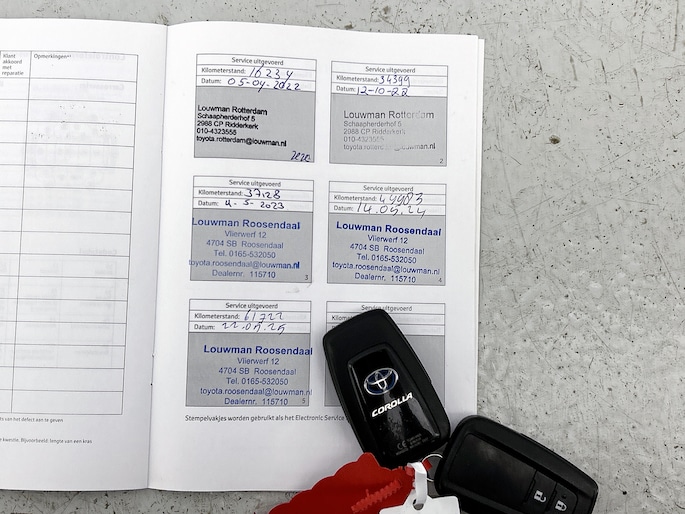 Klant
akkoord
met
reparatie
Opmerkingen
Service uitgevoerd
Kilometerstand: 16234
Datum: 05-04-2022
Louwman Rotterdam
Schaapherderhof 5
2988 CP Ridderkerk
010-4323555
toyota.rotterdam@louwman.nl
Service uitgevoerd
Kilometerstand: 34399
Datum: 12-10-22
Louwman Rotterdam
Schaapherderhof 5
2988 CP Ridderkerk
010-4323555
2
Service uitgevoerd
Kilometerstand: 37128
Datum: 4-5-2023
Louwman Roosendaal
Vlierwerf 12
4704 SB Roosendaal
Tel. 0165-532050
toyota.roosendaal@louwman.nl
Dealernr. 115710
3
Service uitgevoerd
Kilometerstand: 44983
Datum: 14.05.24
Louwman Roosendaal
Vlierwerf 12
4704 SB Roosendaal
Tel. 0165-532050
toyota.roosendaal@louwman.nl
Dealernr. 115710
4
Service uitgevoerd
Kilometerstand: 61722
Datum: 22.05.25
Louwman Roosendaal
Vlierwerf 12
4704 SB Roosendaal
Tel. 0165-532050
toyota.roosendaal@louwman.nl
Dealernr. 115710
5
Stempelvakjes worden gebruikt als het Electronic Service
van het defect aan te geven
kwestie. Bijvoorbeeld: lengte van een kras
COROLLA